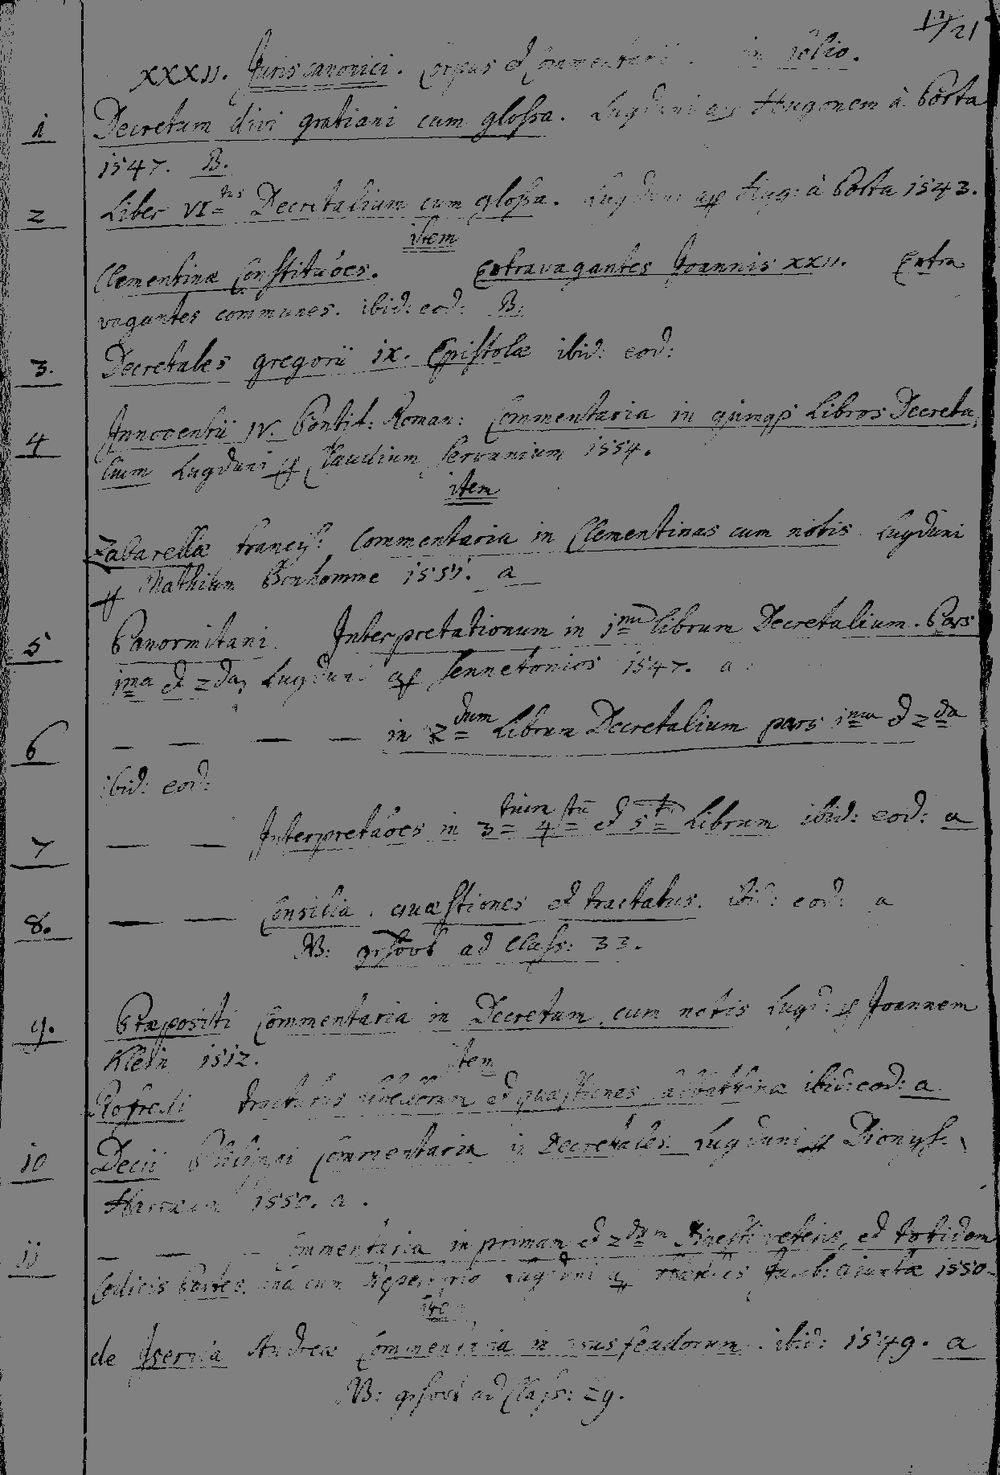 17/21
XXXII. Juris canonici. Corpus et Commentarii in folio.
1 Decretum divi gratiani cum glossa. Lugduni ap Hugonem à Porta
1547. B.
2 Liber VI tus Decretalium cum glossa. Lugduni ap Hug: à Porta 1543.
item
Clementinæ Constituões. Extravagantes Joannis XXII. Extra
vagantes communes. ibid: eod: B.
3. Decretales gregorii IX. Epistolæ ibid: eod:
4 Innocentii IV. Pontif: Roman: Commentaria in quinqȝ Libros Decreta
lium Lugduni ap Claudium Servanium 1554.
item
Zabarellæ francis: Commentaria in Clementinas cum notis Lugduni
ap Mathium Bonhomme 1551. a
5 Panormitani. Interpretationum in 1mu librum Decretalium. Pars
1ma et 2da, Lugduni ap Sennetonios 1547. a.
6 — — — — in 2dum Librum Decretalium pars 1ma et 2da
ibid: eod:
7 — — Interpretaões in 3tium 4tu et 5t Librum ibid: eod: a
8. — — Consilia. quæstiones et tractatus. ibid: eod: a
NB: ad Class: 33.
9. Præpositi Commentaria in Decretum cum notis Lugd: ap Joannem
Klein 1512. item
Rofredi tractatus libellorum et quæstiones sabbathina ibid: eod: a
10 Decii Philippi Commentaria in Decretales Lugduni ap Dionys:
Harræum 1550. a.
11 — — — Commentaria in primam et 2dam Digesti veteris, et totidem
Codicis Partes una cum Repertorio Lugduni ap Jacobi Giuntæ 1550
item
de Isernia Andreæ Commentaria in usus feudorum. ibid: 1549. a
NB: ad Class: 29.